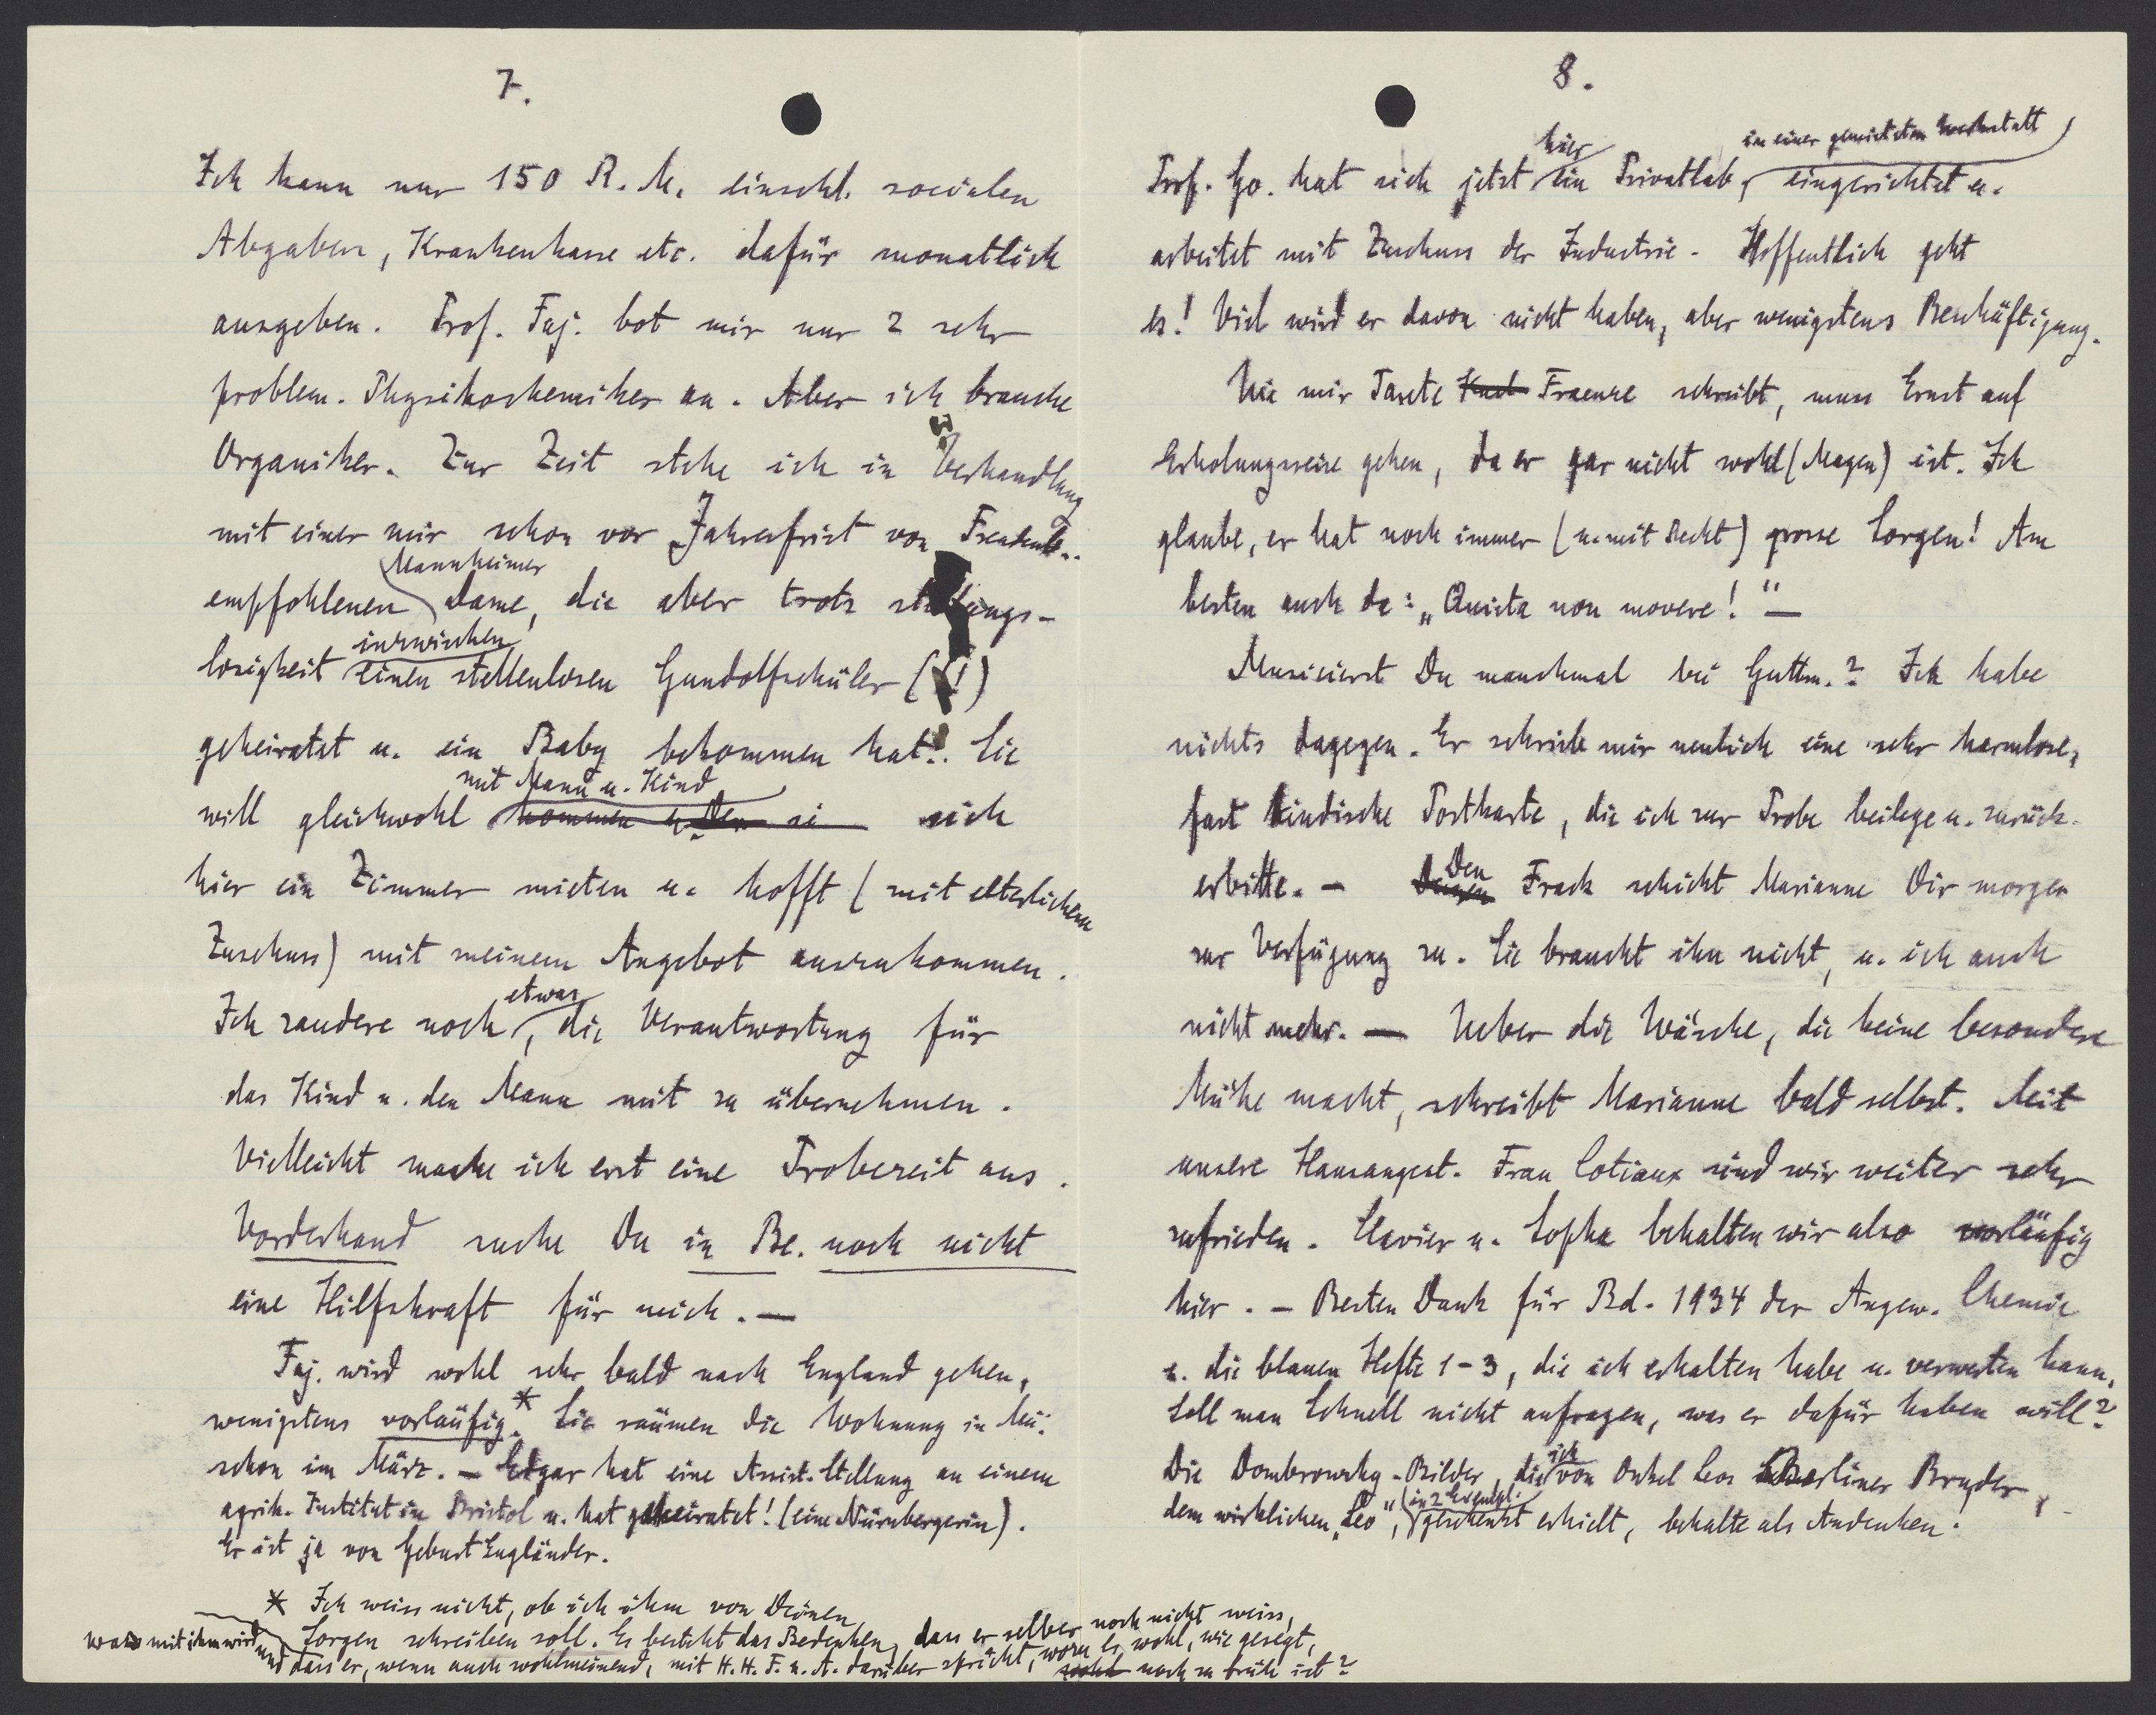 7.
Ich kann nur 150 R. M. einschl. socialen
Abgaben, Krankenkasse etc. dafür monatlich
ausgeben. Prof. Faj. bot mir nur 2 sehr
problem. Physikochemiker an. Aber ich brauche
Organiker. Zur Zeit stehe ich in Verhandlung
mit einer mir schon vor Jahresfrist von
empfohlenen Mannheimer Dame, die aber trotz stellungs-
losigkeit inzwischen einen stellenlosen Gundolfschüler (!!)
geheiratet u. ein Baby bekommen hat!. Sie
will gleichwohl mit Mann u. Kind kommen u. sich
hier ein Zimmer mieten u. hofft (mit elterlichem
Zuschuss) mit meinem Angebot auszukommen.
Ich zaudere noch etwas, die Verantwortung für
das Kind u. den Mann mit zu übernehmen.
Vielleicht mache ich erst eine Probezeit aus.
Vorderhand suche Du in Be. noch nicht
eine Hilfskraft für mich. —
Faj. wird wohl sehr bald nach England gehen,
wenigstens vorläufig.* Sie räumen die Wohnung in Mü.
schon im März. — Edgar hat eine Assist. Stellung an einem
agrik. Institut in Bristol u. hat geheiratet! (eine Nürnbergerin).
Er ist ja von Geburt Engländer.
* Ich weiss nicht, ob ich ihm von Deinen
Sorgen schreiben soll. Es besteht das Bedenken, dass er selber noch nicht weiss,
was mit ihm wird und dass er, wenn auch wohlmeinend, mit H. H. F. u. A. darüber spricht, wozu es wohl, wie gesagt,
wohl noch zu früh ist?
8.
Prof. Go. hat sich jetzt hier ein Privatlab, in einer gemieteten Werkstatt eingerichtet u.
arbeitet mit Zuschuss der Industrie. Hoffentlich geht
es! Viel wird er davon nicht haben, aber wenigstens Beschäftigung.
Wie mir Tante Fraenze schreibt, muss Ernst auf
Erholungsreise gehen, da er gar nicht wohl (Magen) ist. Ich
glaube, er hat noch immer (u. mit Recht) grosse Sorgen! Am
besten auch da: „Quieta non movere!“ —
Musicierst Du manchmal bei Guttm.? Ich habe
nichts dagegen. Er schrieb mir neulich eine sehr harmlose,
fast kindische Postkarte, die ich zur Probe beilege u. zurück-
erbitte. — Den Frack schickt Marianne Dir morgen
zur Verfügung zu. Sie braucht ihn nicht, u. ich auch
nicht mehr. — Ueber die Wäsche, die keine besondere
Mühe macht, schreibt Marianne bald selbst. Mit
unsere Hausangest. Frau Cotiaux sind wir weiter sehr
zufrieden. Clavier u. Sopha behalten wir also vorläufig
hier. — Besten Dank für Bd. 1934 der Angew. Chemie
u. die blauen Hefte 1-3, die ich erhalten habe u. verwerten kann.
Soll man Schnell nicht anfragen, was er dafür haben will?
Die Dombrowsky-Bilder, die ich von Onkel Leos Berliner Bruder,
dem wirklichen „Leo“, (in 2 Exempl.) geschenkt erhielt, behalte als Andenken.